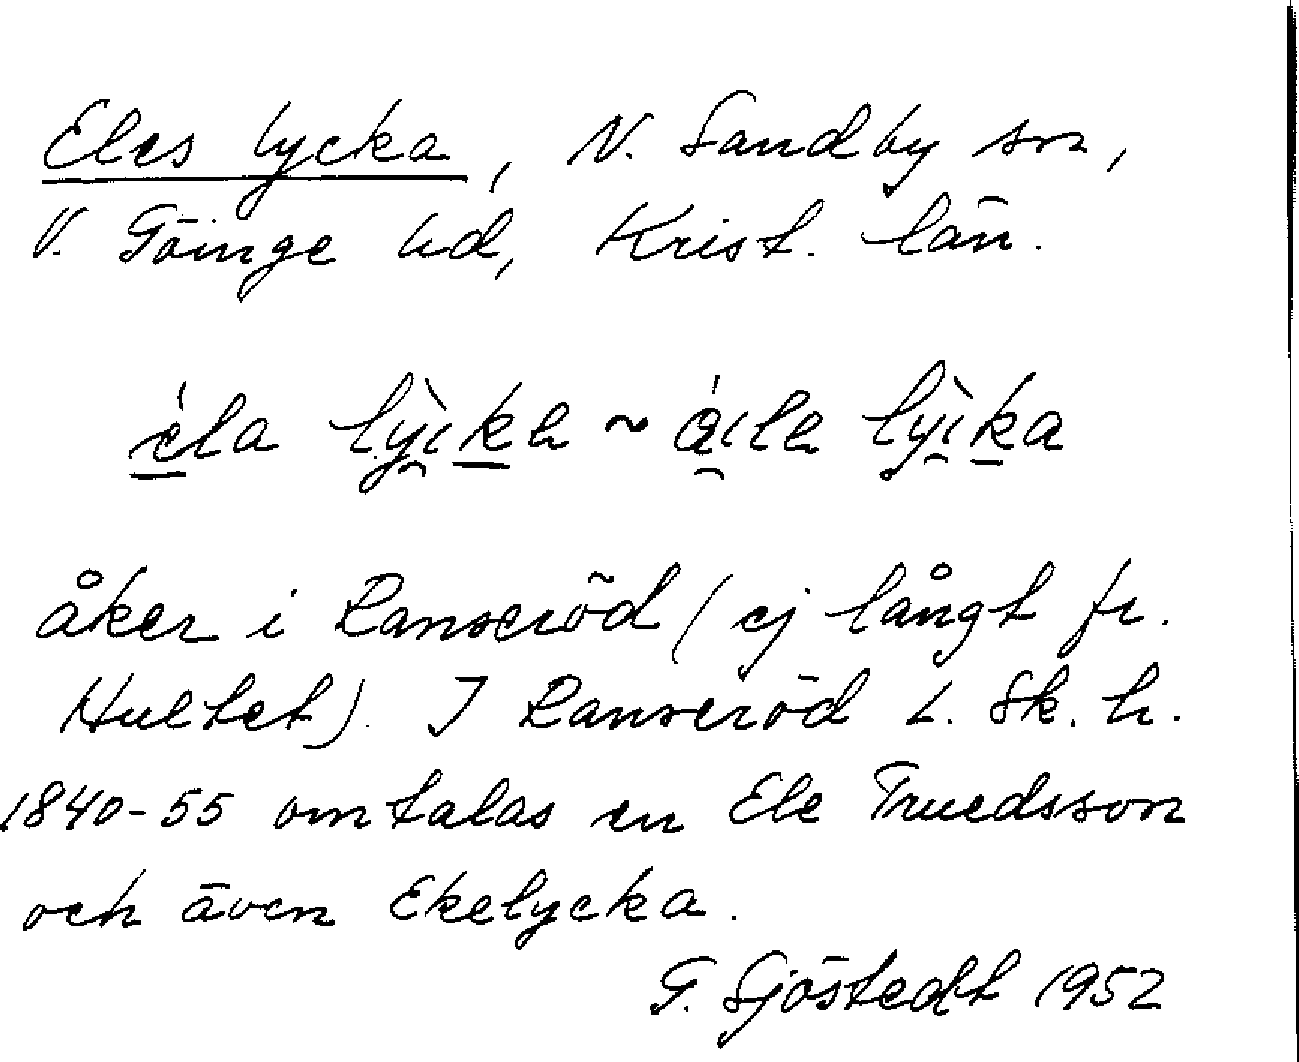 Eles lycka, N. Sandby sn,
V. Göinge hd, Krist. län.
éla lỳıka ~ áıla lỳıka
åker i Ranseröd (ej långt fr.
Hultet). I Ranseröd L. Sk. h.
1840-55 omtalas en Ele Truedsson
och även Ekelycka.
G. Sjöstedt 1952